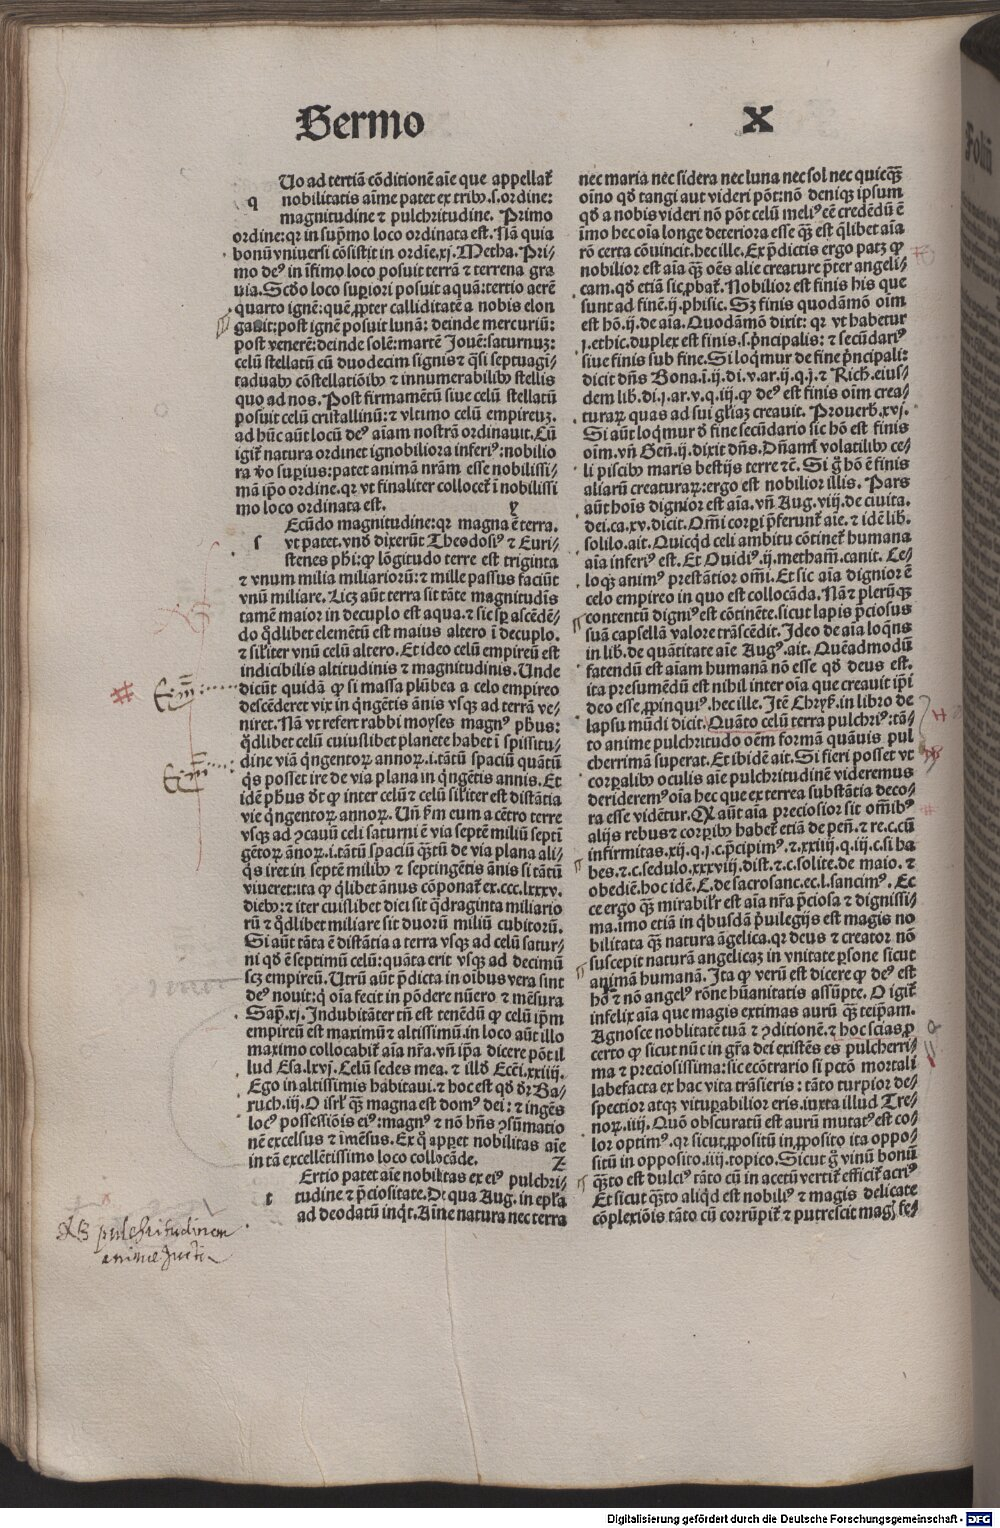 Sermo X
Uo ad tertiā cōditionē aīe que appellat᷑
q nobilitatis aīme patet ex tribꝰ.s.ordine:
magnitudine ⁊ pulchritudine. Primo
ordine: qꝛ in sup̄mo loco ordinata est. Nā quia
bonū vniuersi cōsistit in ordīe.xj. Metha. Pri⸗
mo deꝰ in īfimo loco posuit terrā ⁊ terrena gra
uia. Scd̄o loco superiori posuit aquā: tertio aerē
quarto ignē: quē ꝓpter calliditatē a nobis elon
gauit: post ignē posuit lunā: deinde mercuriū:
post venerē: deinde solē: martē Jouē: saturnuꝫ:
celū stellatū cū duodecim signis ⁊ q̄si septuagī⸗
taduabꝰ cōstellatiōibꝰ ⁊ innumerabilibꝰ stellis
quo ad nos. Post firmamētū siue celū stellatū
posuit celū cristallinū: ⁊ vltimo celū empireuꝫ.
ad hūc aūt locū deꝰ aīam nostrā ordinauit. Cū
igit᷑ natura ordinet ignobiliora inferiꝰ: nobilio
ra v̄o superius: patet animā nrām esse nobilissi⸗
mā ip̄o ordine. qꝛ vt finaliter collocet᷑ ī nobilissi
mo loco ordinata est. y
Ecūdo magnitudine: qꝛ magna ē terra.
s vt patet. vnd̄ dixerūt Theodosiꝰ ⁊ Euri⸗
stenes ph̄i: ꝙ lōgitudo terre est triginta
⁊ vnum milia miliariorū: ⁊ mille passus faciūt
vnū miliare. Licꝫ aūt terra sit tāte magnitudīs
tamē maior in decuplo est aqua. ⁊ sic sp̄ ascēdē⸗
do q̄dlibet elemētū est maius altero ī decuplo.
⁊ sil̄iter vnū celū altero. Et ideo celū empireū est
indicibilis altitudinis ⁊ magnitudinis. Unde
dicūt quidā ꝙ si massa plūbea a celo empireo
descēderet vix in q̄ngētis ānis vsqꝫ ad terrā ve⸗
niret. Nā vt refert rabbi moyses magnꝰ ph̄us:
q̄dlibet celū cuiuslibet planete habet ī spissitu⸗
dine viā q̄ngentoꝝ annoꝝ.i. tātū spaciū quātū
q̄s posset ire de via plana in q̄ngētis annis. Et
idē ph̄us d̄t ꝙ inter celū ⁊ celū sil̄iter est distātia
vie q̄ngentoꝝ annoꝝ. Un̄ ẜm eum a cētro terre
vsqꝫ ad ꝯcauū celi saturni ē via septē miliū septī
gētoꝝ ānoꝝ.i. tātū spaciū q̄ꝫtū de via plana ali⸗
q̄s iret in septē milibꝰ ⁊ septingētis ānis si tātū
viueret: ita ꝙ q̄libet ānus cōponat᷑ ex.ccc.lxxxv.
diebꝰ: ⁊ iter cuislibet diei sit q̄draginta miliario
rū ⁊ q̄dlibet miliare sit duorū miliū cubitorū.
Si aūt tāta ē distātia a terra vsqꝫ ad celū satur⸗
ni qd̄ ē septimū celū: quāta erit vsqꝫ ad decimū
scꝫ empireū. Utrū aūt p̄dicta in oībus vera sint
deꝰ nouit: q̄ oīa fecit in pōdere nūero ⁊ mēsura
Sap̄.xj. Indubitāter tn̄ est tenēdū ꝙ celū ip̄m
empireū est maximū ⁊ altissimū. in loco aūt illo
maximo collocabit᷑ aīa nr̄a. vn̄ ip̄a dicere pōt il
lud Esa.lxvj. Celū sedes mea. ⁊ illd̄ Eccī.xxiiij.
Ego in altissimis habitaui. ⁊ hoc est qd̄ dr̄ Ba⸗
ruch.iij. O isrl̄ q̄ꝫ magna est domꝰ dei: ⁊ ingēs
locꝰ possessiōis eiꝰ: magnꝰ ⁊ nō hn̄s ꝯsūmatio
nē excelsus ⁊ īmēsus. Ex q̄ apꝑet nobilitas aīe
in tā excellētissimo loco collocāde. Z
Ertio patet aīe nobilitas ex eiꝰ pulchri⸗
t tudine ⁊ p̄ciositate. De qua Aug. in ep̄la
ad deodatū inq̄t. Aīme natura nec terra
nec maria nec sidera nec luna nec sol nec quicq̄ꝫ
oīno qd̄ tangi aut videri pōt: nō deniqꝫ ipsum
qd̄ a nobis videri nō pōt celū meliꝰ eē credēdū ē
īmo hec oīa longe deteriora esse q̄ꝫ est q̄libet aīa
rō certa cōuincit. hec ille. Ex p̄dictis ergo patꝫ ꝙ
nobilior est aīa q̄ꝫ oēs alie creature p̄ter angeli⸗
cam. qd̄ etiā sic ꝓbat᷑. Nobilior est finis his que
sunt ad finē.ij. phisic. Sꝫ finis quodāmō oīm
est hō.ij. de aīa. Quodāmō dixit: qꝛ vt habetur
j. ethic. duplex est finis.s. p̄ncipalis: ⁊ secūdariꝰ
siue finis sub fine. Si loq̄mur de fine p̄ncipali:
dicit dn̄s Bona.ī.ij.di.v.ar.ij.q.j. ⁊ Rich. eius⸗
dem lib.di.j.ar.v.q.iij. ꝙ deꝰ est finis oīm crea⸗
turaꝝ quas ad sui gl̄iaꝫ creauit. Prouerb̄.xvj.
Si aūt loq̄mur d̄ fine secūdario sic hō est finis
oīm. vn̄ Gen̄.ij. dixit dn̄s. Dn̄aminī volatilibꝰ ce⸗
li piscibꝰ maris bestijs terre ⁊c̄. Si g̊ hō ē finis
aliarū creaturaꝝ: ergo est nobilior illis. Pars
aūt hoīs dignior est aīa. vn̄ Aug.viij. de ciuita.
dei.ca.xv. dicit. Om̄i corpi p̄ferunt᷑ aīe. ⁊ idē lib.
solilo. ait. Quicq̄d celi ambitu cōtinet᷑ humana
aīa inferiꝰ est. Et Ouidiꝰ.ij. metham̄. canit. Ce⸗
loqꝫ animꝰ prestātior om̄i. Et sic aīa dignior ē
celo empireo in quo est collocāda. Nā ⁊ plerūqꝫ
contentū digniꝰ est cōtinēte. sicut lapis p̄ciosus
suā capsellā valore trāscēdit. Ideo de aīa loq̄ns
in lib. de quātitate aīe Augꝰ. ait. Quēadmodū
fatendū est aīam humanā nō esse qd̄ deus est.
ita presumēdū est nihil inter oīa que creauit ip̄i
deo esse ꝓpinquiꝰ. hec ille. Itē Chryſ. in libro de
lapsu mūdi dicit. Quāto celū terra pulchriꝰ: tā⸗
to anime pulchritudo oēm formā quāuis pul
cherrimā superat. Et ibidē ait. Si fieri posset vt
corꝑalibꝰ oculis aīe pulchritudinē videremus
derideremꝰ oīa hec que ex terrea substātia deco⸗
ra esse vidētur. Qꝙ aūt aīa preciosior sit om̄ibꝰ
alijs rebus ⁊ corꝑibꝰ habet᷑ etiā de pen̄. ⁊ re.c.cū
infirmitas.xij.q.j.c. p̄cipimꝰ.⁊.xxiij.q.iij.c. si ha
bes.⁊.c. sedulo.xxxviij. dist.⁊.c. solite. de maio. ⁊
obediē. hoc idē. C. de sacrosanc. ec. l. sancimꝰ. Ec
ce ergo q̄ꝫ mirabilr̄ est aīa nr̄a p̄ciosa ⁊ dignissi⸗
ma. īmo etiā in q̄busdā p̄uilegijs est magis no
bilitata q̄ꝫ natura āgelica. qꝛ deus ⁊ creator nō
suscepit naturā angelicaꝫ in vnitate ꝑsone sicut
animā humanā. Ita ꝙ verū est dicere ꝙ deꝰ est
hō ⁊ nō angelꝰ rōne hūanitatis assūpte. O igit᷑
infelix aīa que magis extimas aurū q̄ꝫ teip̄am.
Agnosce noblitatē tuā ⁊ ꝯditionē. ⁊ hoc scias ꝓ
certo ꝙ sicut nūc in gr̄a dei existēs es pulcherri⸗
ma ⁊ preciosissima: sic ecōtrario si pctō mortali
labefacta ex hac vita trāsieris: tāto turpior de⸗
spectior atqꝫ vituꝑabilior eris. iuxta illud Tre⸗
noꝝ.iiij. Quō obscuratū est aurū mutatꝰ est co⸗
lor optimꝰ. qꝛ sicut ꝓpositū in ꝓposito ita oppo⸗
sitū in opposito.iiij. topico. Sicut g̊ vinū bonū
q̄ꝫto est dulciꝰ tāto cū in acetū vertit᷑ efficit᷑ acriꝰ
Et sicut q̄ꝫto aliq̄d est nobiliꝰ ⁊ magis delicate
cōplexiōis tāto cū corrūpit᷑ ⁊ putrescit magꝭ fe⸗
pulchritudinem
Foliū
Digitalisierung gefördert durch die Deutsche Forschungsgemeinschaft - DFG